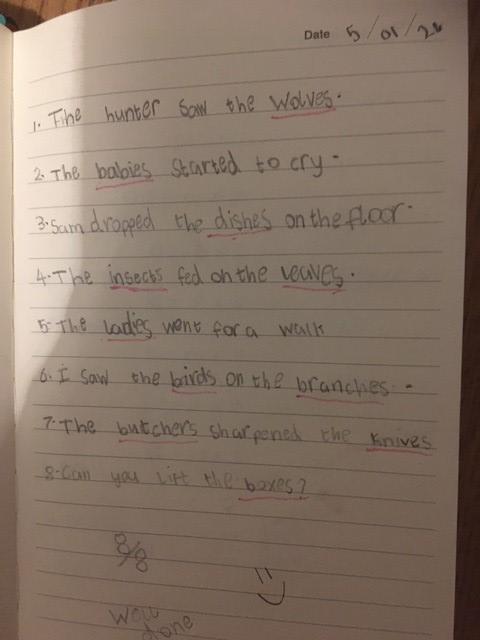 Date 5/01/26
1. The hunter saw the wolves.
2. The babies started to cry.
3. Sam dropped the dishes on the floor.
4. The insects fed on the leaves.
5. The ladies went for a walk
6. I saw the birds on the branches.
7. The butchers sharpened the knives
8. Can you lift the boxes?
8/8
well
done